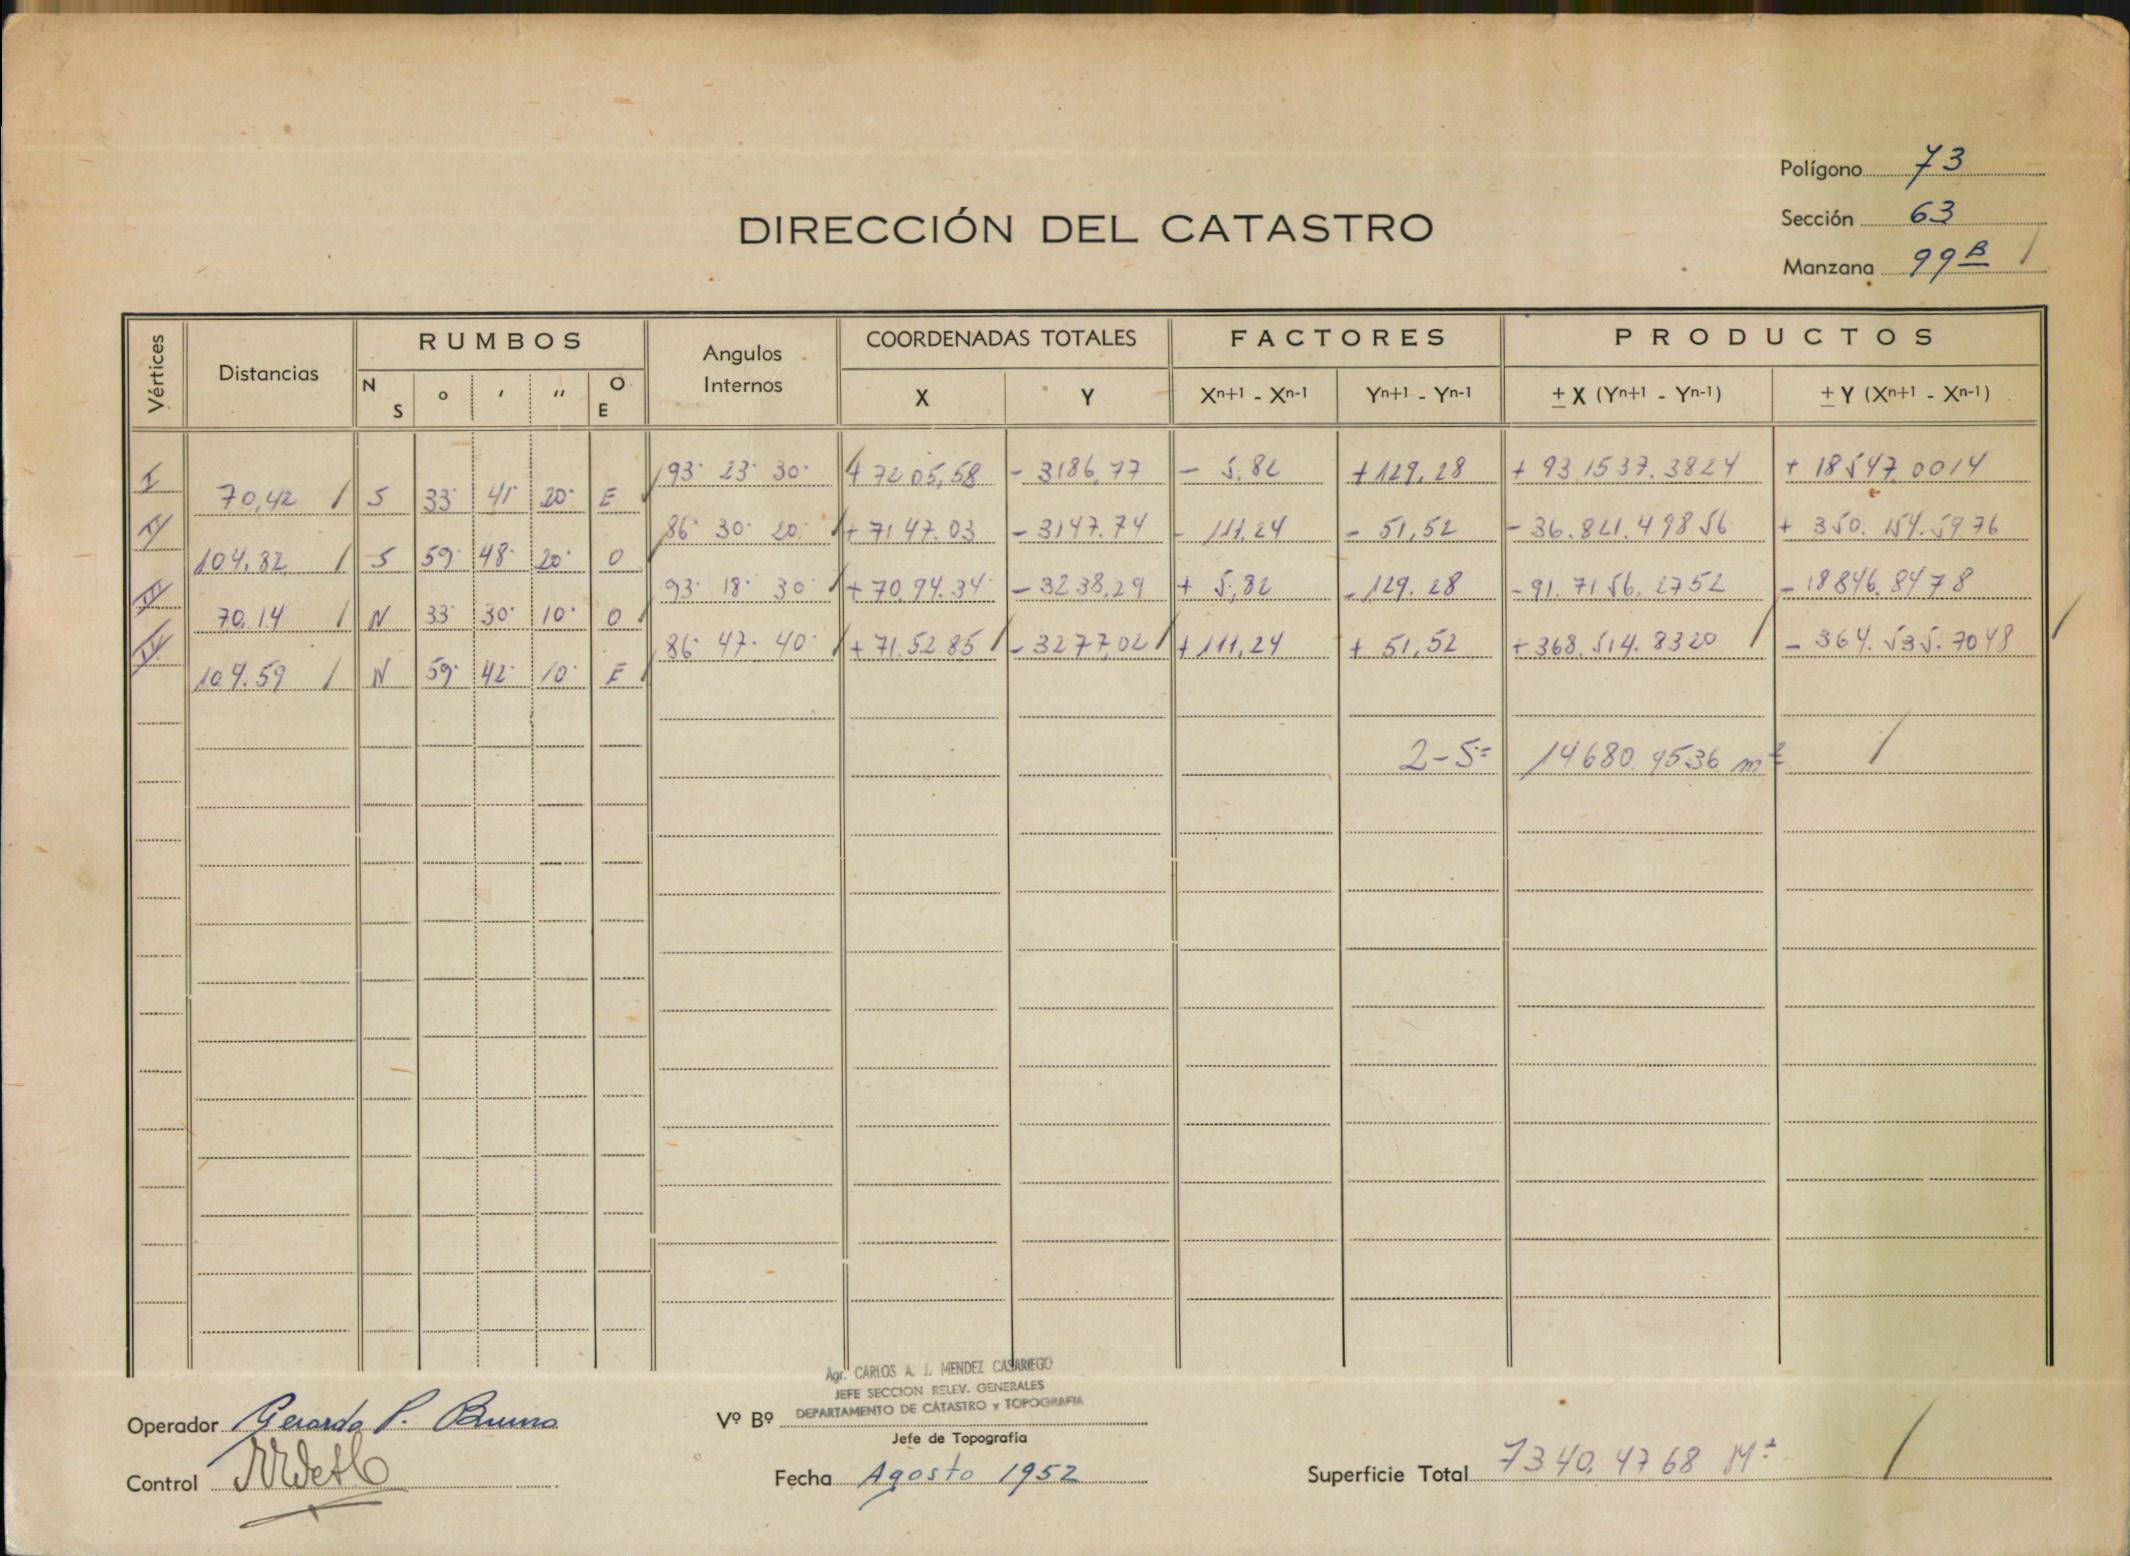 Polígono 73
DIRECCIÓN DEL CATASTRO
Sección 63
Manzana 99 B
Vértices Distancias RUMBOS Angulos Internos COORDENADAS TOTALES FACTORES PRODUCTOS
N S ° ' " O E X Y Xn+1 - Xn-1 Yn+1 - Yn-1 ± X (Yn+1 - Yn-1) ± Y (Xn+1 - Xn-1)
I 93° 23' 30" + 7205,58 - 3186,77 - 5,82 + 129,28 + 93.1537.3824 + 18547.0014
70,42 S 33° 41' 20" E
II 86° 30' 20" + 7147.03 - 3147.74 - 111,24 - 51,52 - 36.821.49856 + 350.154.5976
104.82 S 59° 48' 20" O
III 93° 18' 30" + 7094.34 - 3238,29 + 5,82 - 129.28 - 91.7156,2752 - 18846.8478
70.14 N 33° 30' 10" O
IV 86° 47' 40" + 7152.85 - 3277,02 + 111,24 + 51,52 + 368.514.8320 - 364.535.7048
104.59 N 59° 42' 10" E
2-S= 14680.9536 m²
Agr. CARLOS A. J. MENDEZ CASARIEGO
JEFE SECCION RELEV. GENERALES
DEPARTAMENTO DE CATASTRO y TOPOGRAFIA
Operador Gerardo P. Bruno
Vº Bº
Jefe de Topografía
Control
Fecha Agosto 1952
Superficie Total 7340.4768 M²